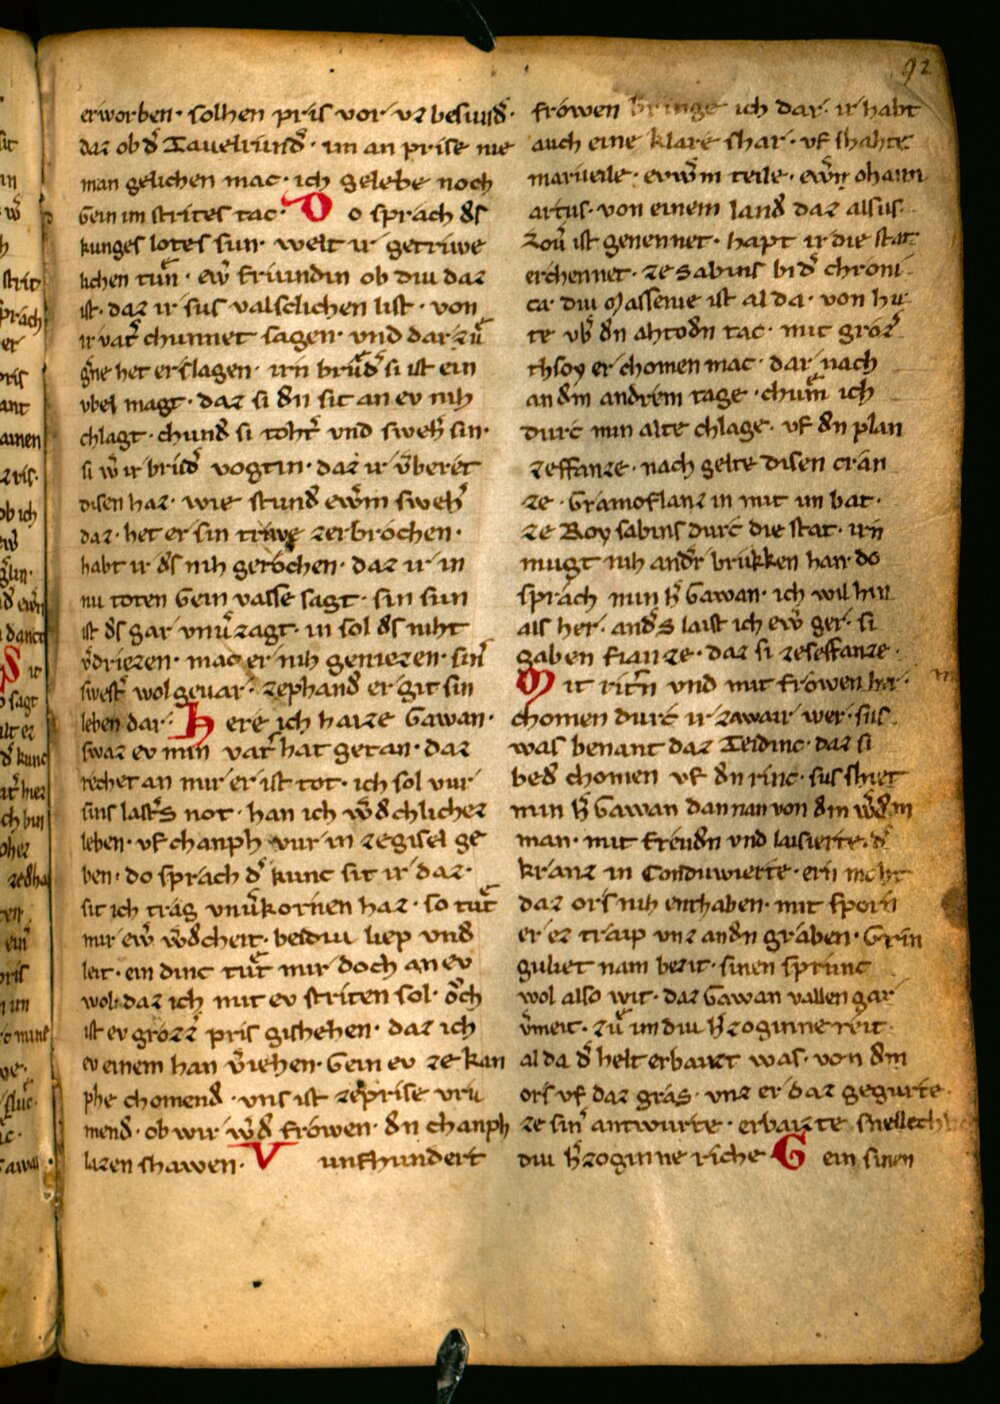 92
erworben· solhen pris vor vz besund͛·
daz ob d͛ Tauelrund͛· im an prise nie
man gelichen mac· ich gelebe noch
Gein im strites tac· Do sprach d͛s
kunges lotes sun· welt ir getriwe
lichen tuͦn· ew͛ friundin ob diu daz
ist· daz ir sus valsclichen list· von
ir vat͛ chunnet sagen· vnd dar zuͦ
g͛ne het erslagen· irn bruͦd͛ si ist ein
vbel magt· daz si d͛n sit an ev nih
chlagt· chund͛ si toht͛ vnd sweh͛ sin·
si w͛ ir brud͛ vogtin· daz ir v͛beret
disen haz· wie stund͛ ew͛m sweh͛
daz· het er sin triwe zerbrochen·
habt ir d͛s nih gerochen· daz ir in
nu toten Gein valsse sagt· sin sun
ist d͛s gar vnu͛zagt· in sol d͛s niht
v͛driezen· mac er nih geniezen· sin͛
swest͛ wol geuar· zephand͛ er git sin
leben dar· Here ich haize Gawan·
swaz ev min vat͛ hat getan· daz
rechet an mir er ist tot· ich sol vur
sins last͛s not· han ich w͛d͛chlichez
leben· vf chanph vur in zegisel ge
ben· do sprach d͛ kunc sit ir daz·
sit ich trag vnu͛kornen haz· so tuͦt
mir ew͛ w͛d͛cheit· beidiu liep vnd
leit· ein dinc tuͦt mir doch an ev
wol· daz ich mit ev striten sol· oͮch
ist ev grozz͛ pris gishehen· daz ich
ev einem han v͛iehen· Gein ev ze kan
phe chomend͛· vns ist zeprise vru
mend͛· ob wir w͛d͛ frowen· d͛n chanph
lazen shawen· Vunfhundert
frowen bringe ich dar· ir habt
auch eine klare shar· vf shahte
marueile· ew͛m teile· ew͛n ohaim
artus· von einem land͛ daz alsus·
Loͮu͛ ist genennet· hapt ir die stat
erchennet· ze sabins bi d͛ chroni
ca· diu Massenie ist al da· von hu
te vb͛ d͛n ahtod͛n tac· mit groz͛
thsoy er chomen mac· dar nach
an d͛m andrem tage· chuͦm ich
durc min alte chlage· vf d͛n plan
zeffanze· nach gelte disen cran
ze· Gramoflanz in mit im bat·
ze Roy sabins durc die stat· irn
mugt nih and͛r brukken han· do
sprach min h͛ Gawan· ich wil hin
als her· and͛s laist ich ew͛ ger· si
gaben fianze· daz si zeseffanze·
Mit rit͛n vnd mit frowen her·
chomen durc ir zwair wer· sus
was benant daz Teidinc· daz si
bed͛ chomen vf d͛n rinc· sus shiet
min h͛ Gawan dannan von d͛m w͛d͛m
man· mit freud͛n vnd laisierte· d͛
kranz in Conduwierte· ern moht
daz ors nih enthaben· mit sporn
er ez traip vnz an d͛n graben· Grin
guliet nam bezit· sinen sprunc
wol also wit· daz Gawan vallen gar
v͛meit· zuͦ im diu h͛zoginne reit·
al da d͛ helt erbaizt was· von d͛m
ors vf daz gras· vnz er daz gegurte·
ze sin͛ antwurte· erbaizte snellech
diu h͛zoginne riche· Gein sinen